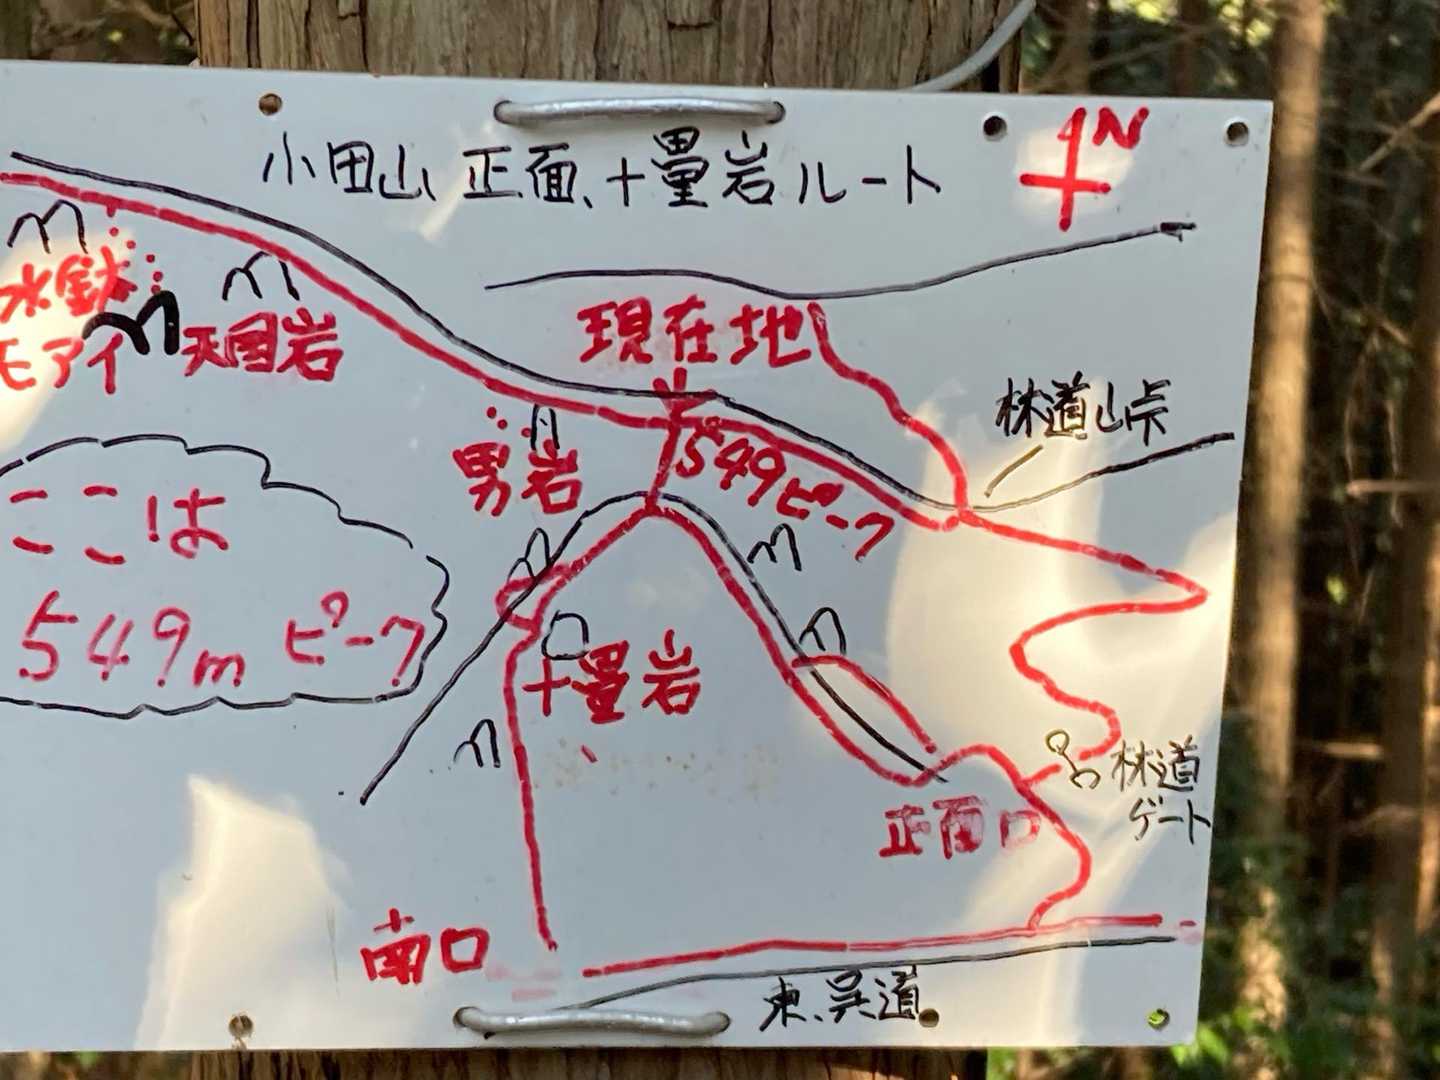 小田山 正面、十畳岩ルート
N
水鉄
モアイ
天国岩
現在地
林道峠
男岩
549ピーク
ここは
549m ピーク
十畳岩
林道
ゲート
正面口
南口
東、呉道